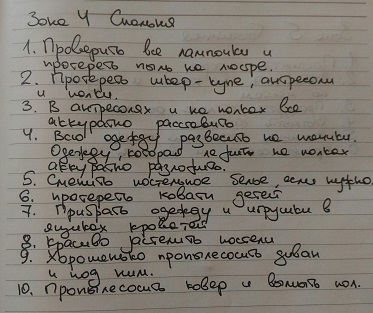 Зона 4 Спальня
1. Проверить все лампочки и
протереть пыль на люстре.
2. Протереть шкаф-купе, антресоли
и полки.
3. В антресолях и на полках все
аккуратно расставить
4. Всю одежду развесить на
Одежду, которая лежит на полках
аккуратно разложить.
5. Сменить постельное белье, если нужно.
6. протереть кровати детей
7. Прибрать одежду и игрушки в
ящиках кроватей
8. красиво застелить постели
9. Хорошенько пропылесосить диван
и под ним.
10. Пропылесосить ковер и вымыть пол.